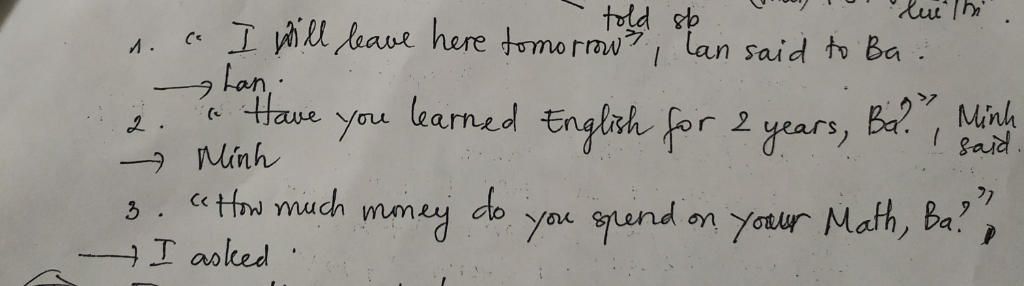 told sb
lui thì.
1. " I will leave here tomorrow", Lan said to Ba.
→ Lan.
2. " Have you learned English for 2 years, Ba?", Minh
said.
→ Minh
3. "How much money do you spend on your Math, Ba?",
→ I asked.